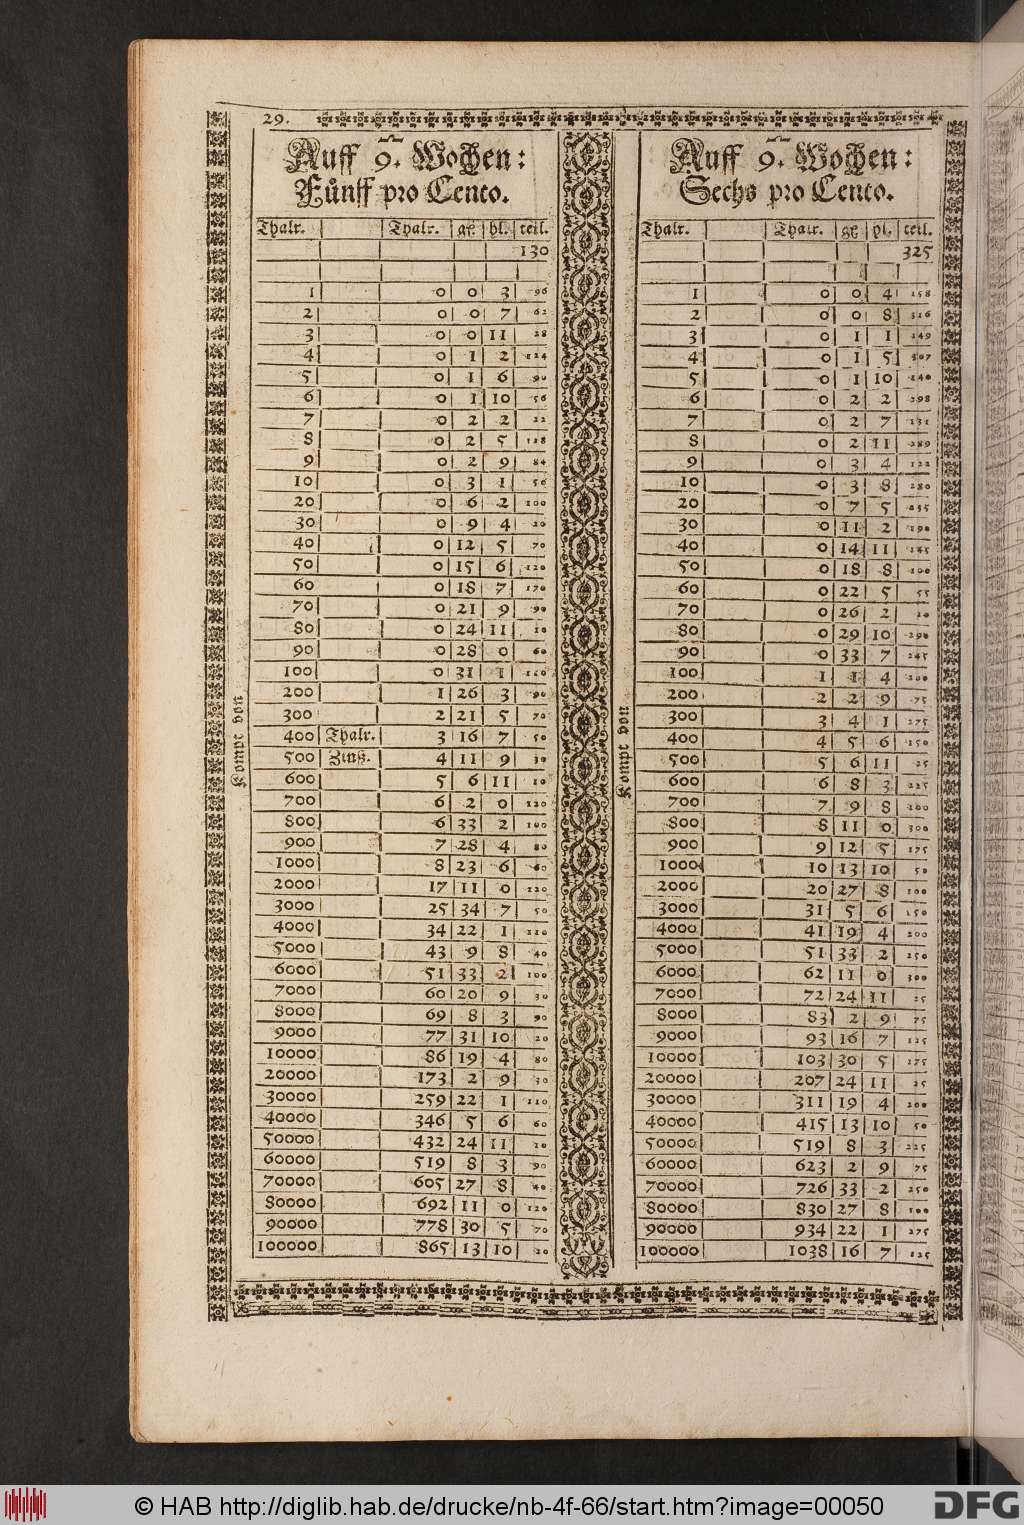 29.
Auff 9. Wochen:
Fünff pro Cento.
Thalr. Thalr. gſ. hl. teil.
130
1 0 0 3 96
2 0 0 7 62
3 0 0 11 28
4 0 1 2 124
5 0 1 6 90
6 0 1 10 56
7 0 2 2 22
8 0 2 5 118
9 0 2 9 84
10 0 3 1 50
20 0 6 2 100
30 0 9 4 20
40 0 12 5 70
50 0 15 6 120
60 0 18 7 170
70 0 21 9 90
80 0 24 11 10
90 0 28 0 60
100 0 31 1 110
200 1 26 3 90
300 2 21 5 70
400 Thalr. 3 16 7 50
500 Zinß. 4 11 9 30
600 5 6 11 10
700 6 2 0 120
800 6 33 2 100
900 7 28 4 80
1000 8 23 6 60
2000 17 11 0 120
3000 25 34 7 50
4000 34 22 1 110
5000 43 9 8 40
6000 51 33 2 100
7000 60 20 9 30
8000 69 8 3 90
9000 77 31 10 20
10000 86 19 4 80
20000 173 2 9 30
30000 259 22 1 110
40000 346 5 6 60
50000 432 24 11 10
60000 519 8 3 90
70000 605 27 8 40
80000 692 11 0 120
90000 778 30 5 70
100000 865 13 10 20
Kompt von
Auff 9. Wochen:
Sechs pro Cento.
Thalr. Thalr. gſ. hl. teil.
325
1 0 0 4 158
2 0 0 8 316
3 0 1 1 149
4 0 1 5 307
5 0 1 10 140
6 0 2 2 298
7 0 2 7 131
8 0 2 11 289
9 0 3 4 122
10 0 3 8 280
20 0 7 5 235
30 0 11 2 190
40 0 14 11 145
50 0 18 8 100
60 0 22 5 55
70 0 26 2 10
80 0 29 10 290
90 0 33 7 245
100 1 1 4 200
200 2 2 9 75
300 3 4 1 275
400 4 5 6 150
500 5 6 11 25
600 6 8 3 225
700 7 9 8 100
800 8 11 0 300
900 9 12 5 175
1000 10 13 10 50
2000 20 27 8 100
3000 31 5 6 150
4000 41 19 4 200
5000 51 33 2 250
6000 62 11 0 300
7000 72 24 11 25
8000 83 2 9 75
9000 93 16 7 125
10000 103 30 5 175
20000 207 24 11 25
30000 311 19 4 200
40000 415 13 10 50
50000 519 8 3 225
60000 623 2 9 75
70000 726 33 2 250
80000 830 27 8 100
90000 934 22 1 275
100000 1038 16 7 125
Kompt von
© HAB http://diglib.hab.de/drucke/nb-4f-66/start.htm?image=00050
DFG